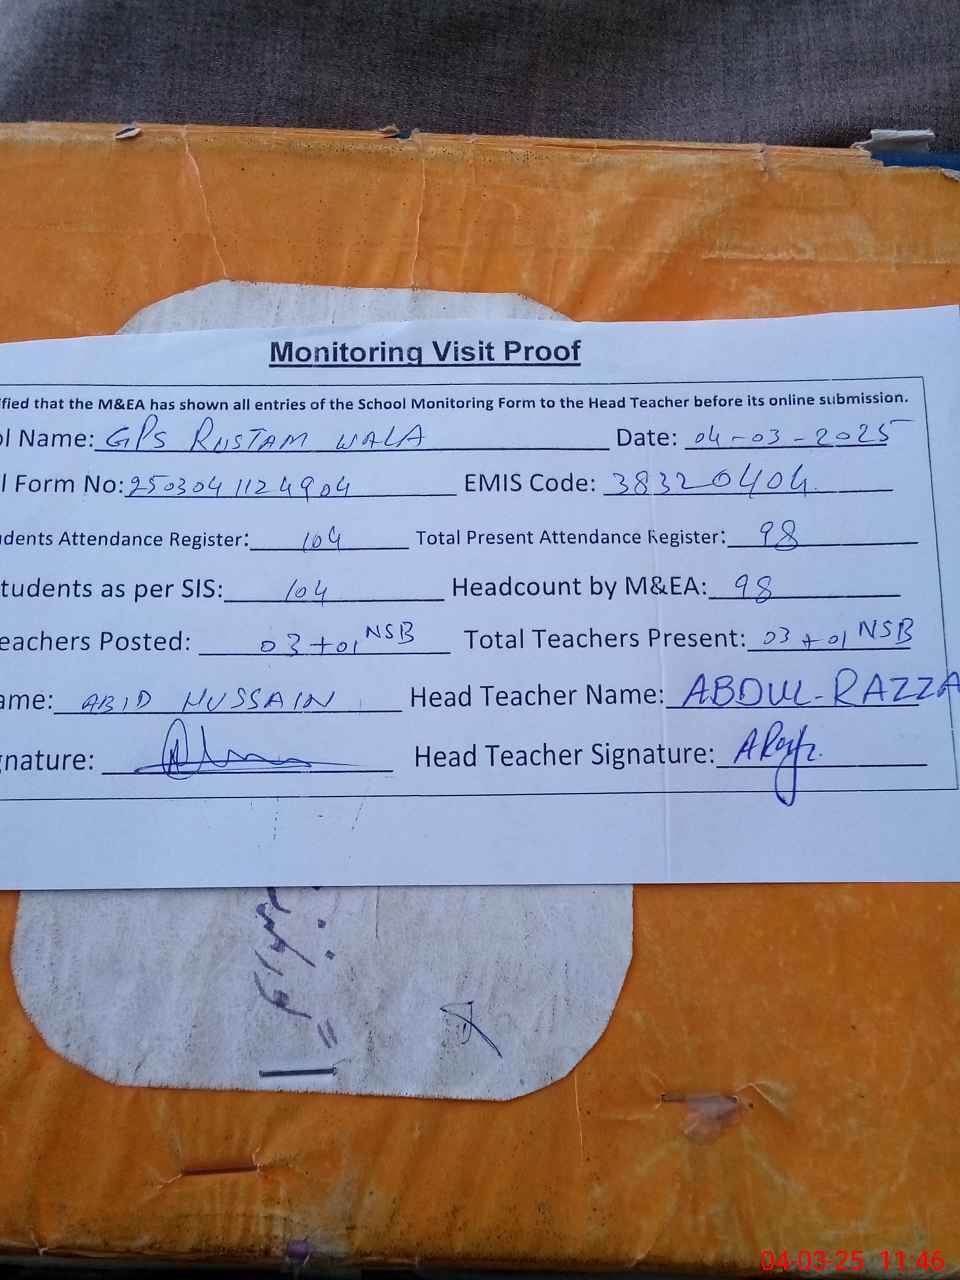 Monitoring Visit Proof
ified that the M&EA has shown all entries of the School Monitoring Form to the Head Teacher before its online submission.
ol Name: GPS RUSTAM WALA Date: 04-03-2025
l Form No: 2503041124904 EMIS Code: 38320404
udents Attendance Register: 104 Total Present Attendance Register: 98
tudents as per SIS: 104 Headcount by M&EA: 98
eachers Posted: 03+01 NSB Total Teachers Present: 03+01 NSB
ame: ABID HUSSAIN Head Teacher Name: ABDUL-RAZZA
gnature: Head Teacher Signature:
04-03-25 11:46